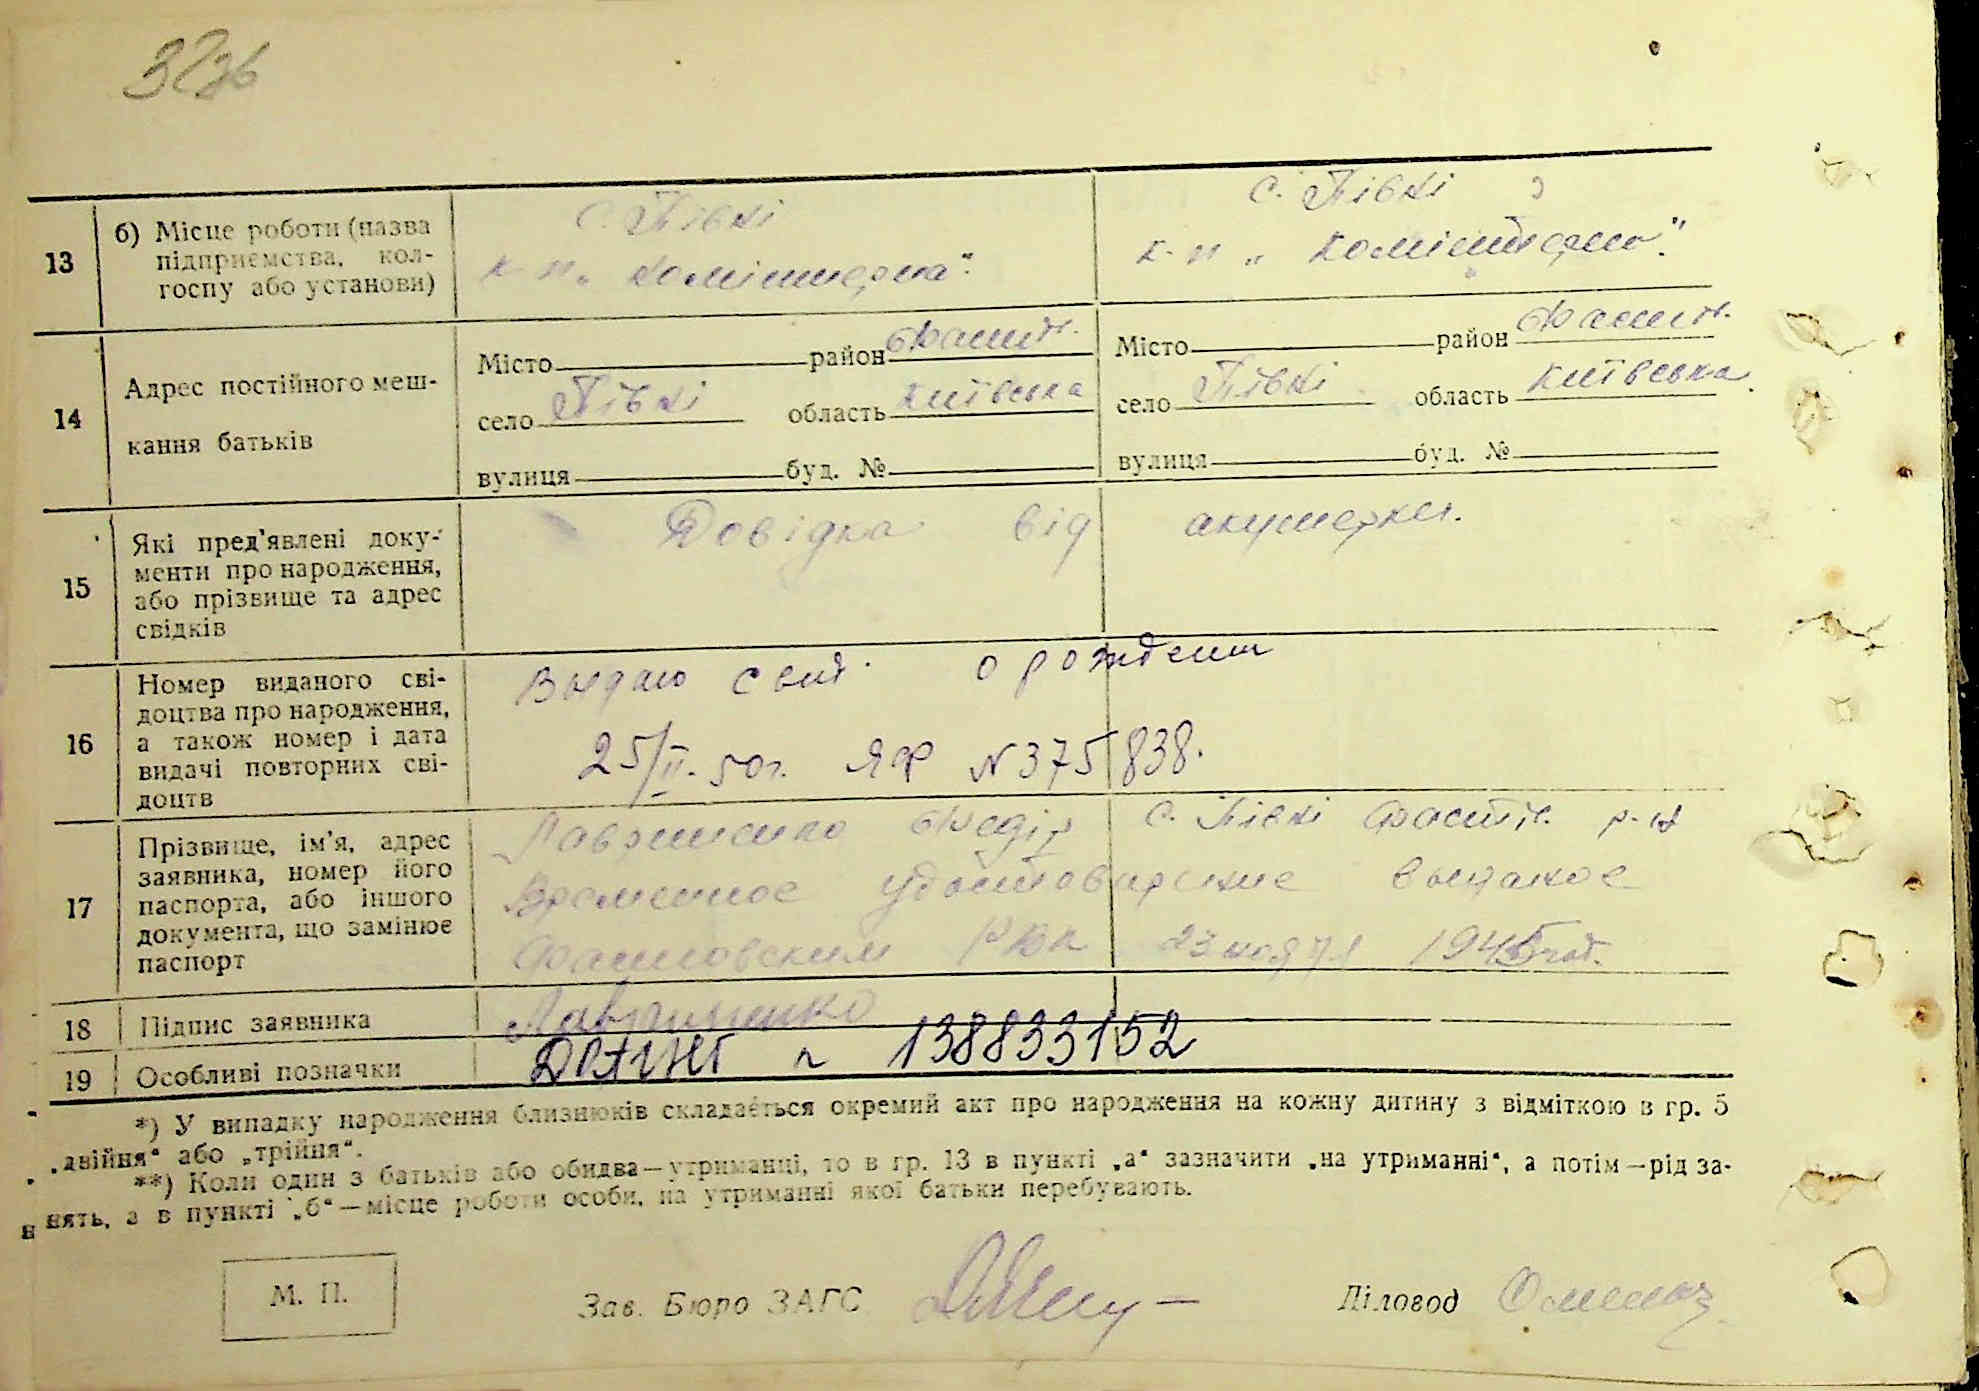 13 б) Місце роботи (назва
підприємства, кол-
госпу або установи)
с. Півні
к-п „Комінтерна“.
с. Півні
к-п „Комінтерна“.
14 Адрес постійного меш-
кання батьків
Місто район Фастів.
село Півні область Київська
вулиця буд. №
Місто район Фастів.
село Півні область Київська
вулиця буд. №
15 Які пред'явлені доку-
менти про народження,
або прізвище та адрес
свідків
Довідка від акушерки.
16 Номер виданого сві-
доцтва про народження,
а також номер і дата
видачі повторних сві-
доцтв
Выдано свид. о рождении
25/II-50г. ЯФ №375838.
17 Прізвище, ім'я, адрес
заявника, номер його
паспорта, або іншого
документа, що замінює
паспорт
Лавриненко Федір с. Півні Фастів. р-н
Временное удостоверение выданое
Фастовским РВК 23 ноября 1945 год.
18 Підпис заявника
Лавриненко
19 Особливі позначки
№ 138833152
*) У випадку народження близнюків складається окремий акт про народження на кожну дитину з відміткою в гр. 5
„двійня“ або „трійня“.
**) Коли один з батьків або обидва—утриманці, то в гр. 13 в пункті „а“ зазначити „на утриманні“, а потім—рід за-
нять, а в пункті „б“—місце роботи особи, на утриманні якої батьки перебувають.
М. П.
Зав. Бюро ЗАГС
Діловод